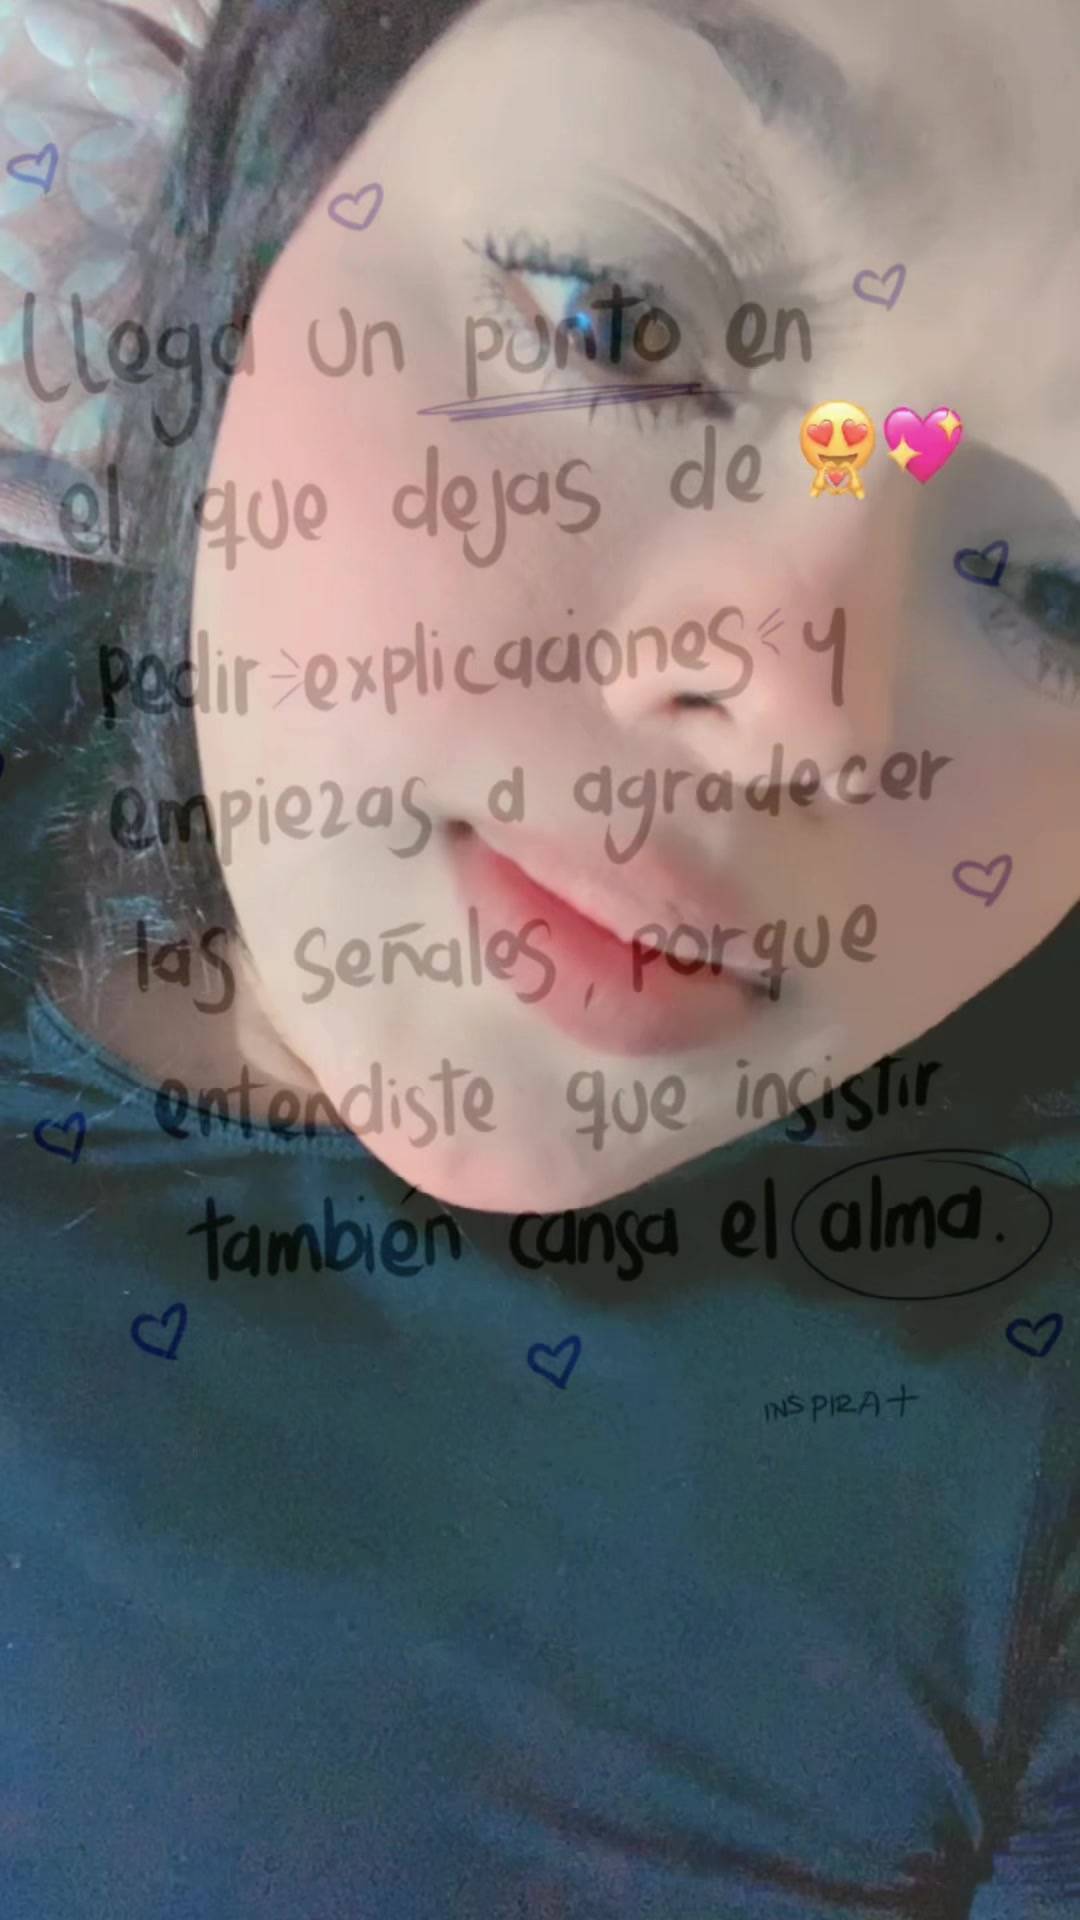 Llega un punto en
el que dejas de 😍💖
pedir explicaciones y
empiezas a agradecer
las señales, porque
entendiste que insistir
también cansa el alma.
INSPIRA+